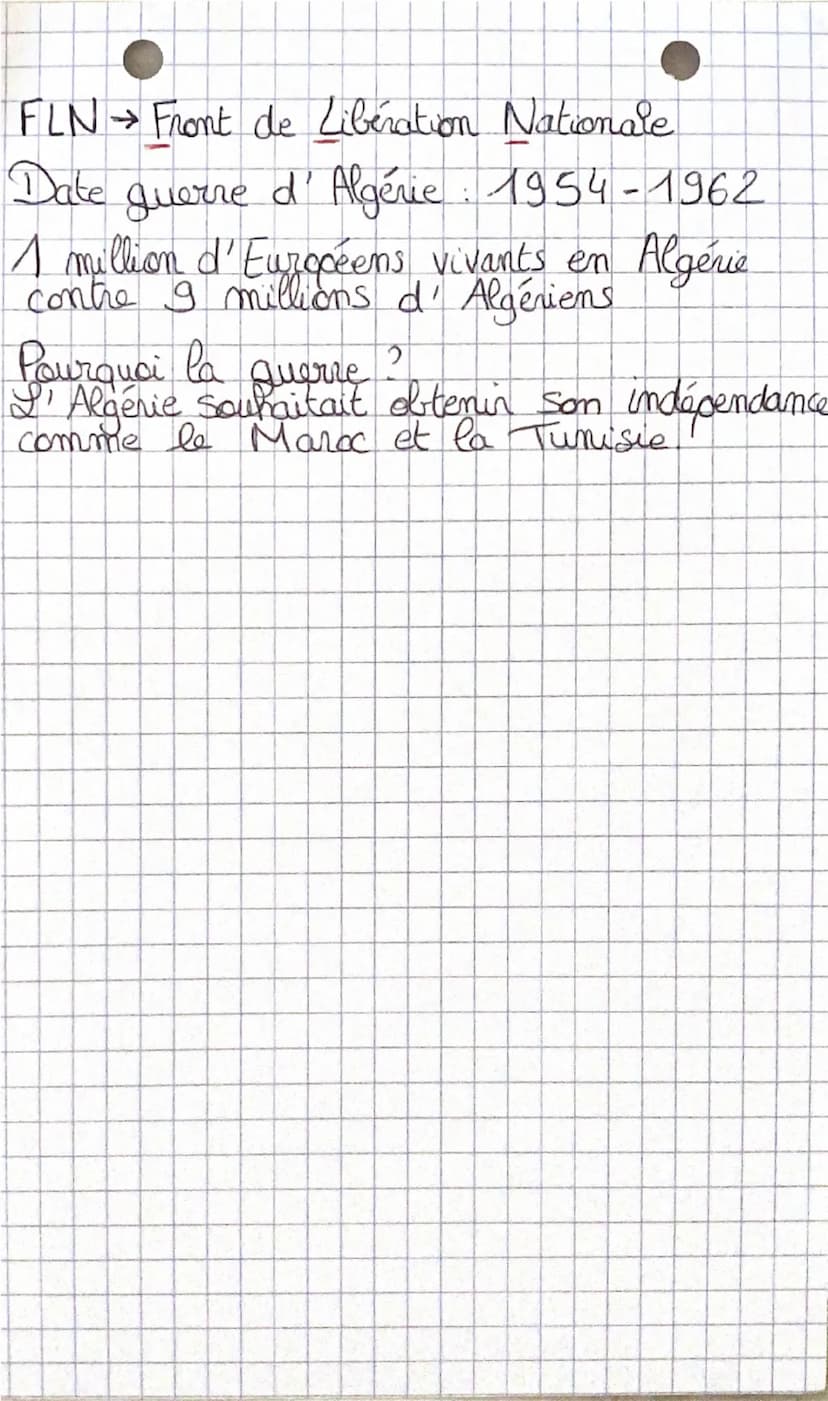 FLN → Front de Libération Nationale
Date guerre d'Algérie : 1954-1962
1 million d'Européens vivants en Algérie
contre 9 millions d'Algériens
Pourquoi la guerre ?
L'Algérie souhaitait obtenir son indépendance
comme le Maroc et la Tunisie.